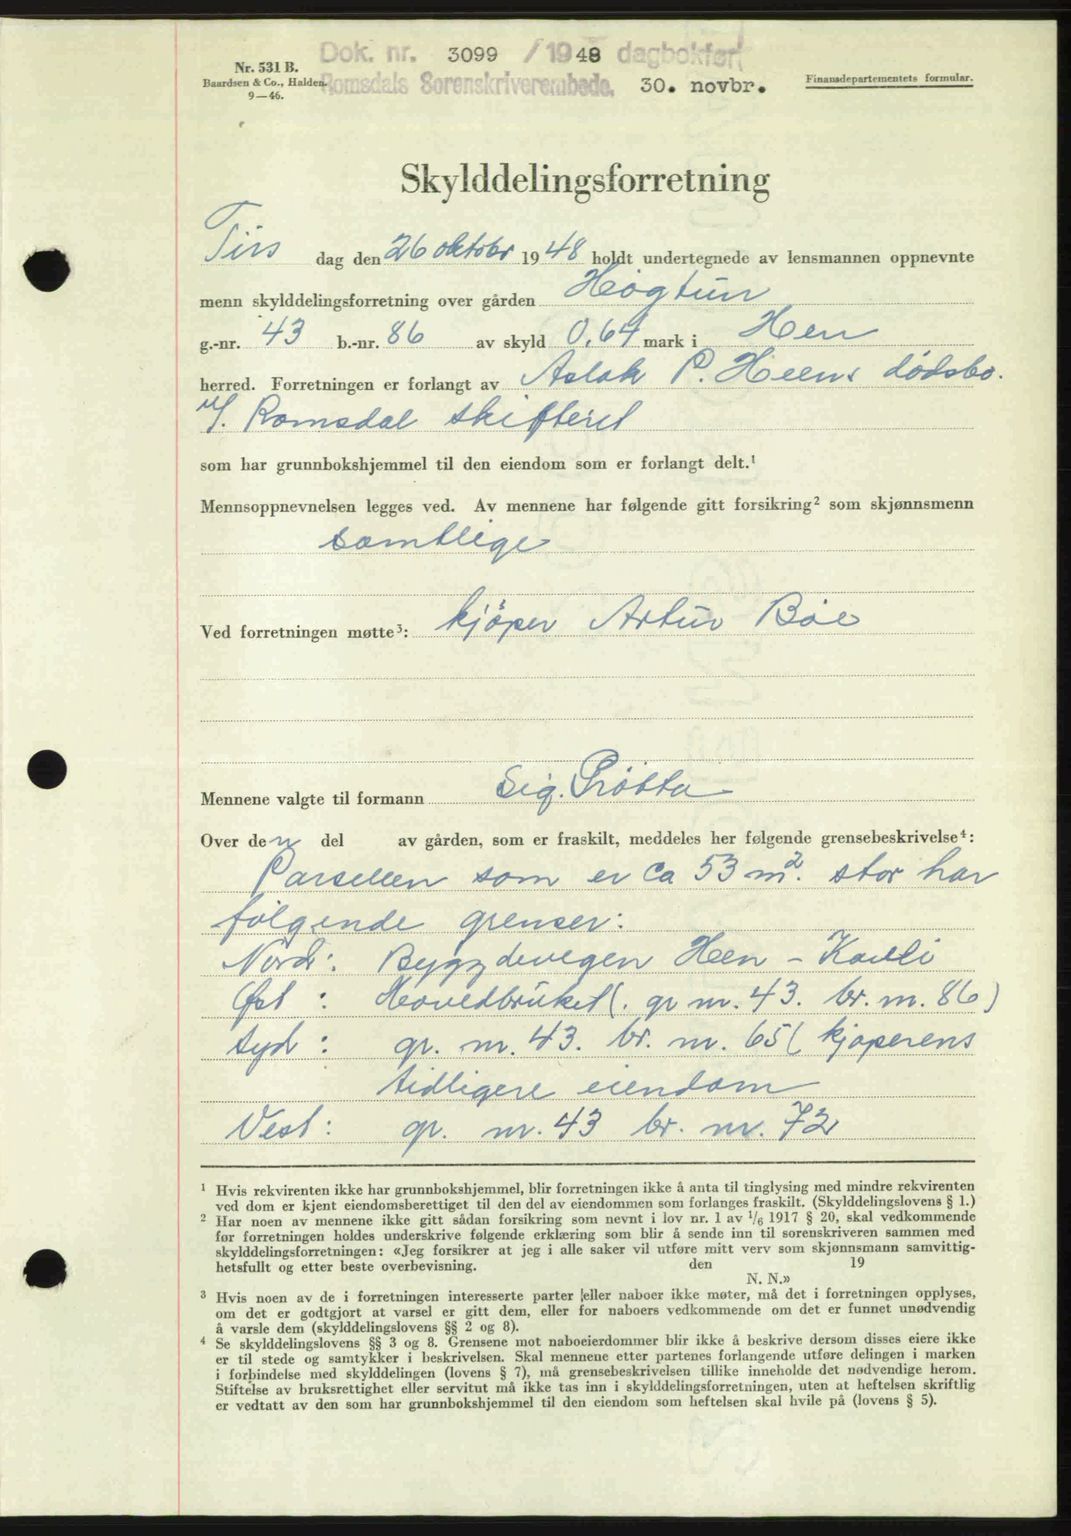 Nr. 531 B.
Baardsen & Co., Halden.
9—46.
Dok. nr. 3099 / 1948 dagbokført
Romsdals Sorenskriverembede. 30. novbr.
Finansdepartementets formular.
Skylddelingsforretning
Tirs dag den 26 oktobr 1948 holdt undertegnede av lensmannen oppnevnte
menn skylddelingsforretning over gården Høgtun
g.-nr. 43 b.-nr. 86 av skyld 0,64 mark i Hen
herred. Forretningen er forlangt av Aslak P. Heens dødsbo.
v/. Romsdal skifteret
som har grunnbokshjemmel til den eiendom som er forlangt delt.¹
Mennsoppnevnelsen legges ved. Av mennene har følgende gitt forsikring² som skjønnsmenn
samtlige
Ved forretningen møtte³: kjöper Artur Böe
Mennene valgte til formann Sig. Pröbta
Over den del av gården, som er fraskilt, meddeles her følgende grensebeskrivelse⁴:
Parsellen som er ca 53 m². stor har
følgende grenser:
Nord: Bygdevegen Hen - Kavli
Øst : Hovedbruket (. gr nr. 43. br. nr. 86)
Syd : gr. nr. 43. br. nr. 65 ( kjøperens
tidligere eiendom
Vest: gr. nr. 43 br. nr. 72
¹ Hvis rekvirenten ikke har grunnbokshjemmel, blir forretningen ikke å anta til tinglysing med mindre rekvirenten
ved dom er kjent eiendomsberettiget til den del av eiendommen som forlanges fraskilt. (Skylddelingslovens § 1.)
² Har noen av mennene ikke gitt sådan forsikring som nevnt i lov nr. 1 av 1/6 1917 § 20, skal vedkommende
før forretningen holdes underskrive følgende erklæring som blir å sende inn til sorenskriveren sammen med
skylddelingsforretningen: «Jeg forsikrer at jeg i alle saker vil utføre mitt verv som skjønnsmann samvittig-
hetsfullt og etter beste overbevisning. den 19
N. N.»
³ Hvis noen av de i forretningen interesserte parter eller naboer ikke møter, må det i forretningen opplyses,
om det er godtgjort at varsel er gitt dem, eller for naboers vedkommende om det er funnet unødvendig
å varsle dem (skylddelingslovens §§ 2 og 8).
⁴ Se skylddelingslovens §§ 3 og 8. Grensene mot naboeierdommer blir ikke å beskrive dersom disses eiere ikke
er til stede og samtykker i beskrivelsen. Skal mennene etter partenes forlangende utføre delingen i marken
i forbindelse med skylddelingen (lovens § 7), må grensebeskrivelsen tillike inneholde det nødvendige herom.
Stiftelse av bruksrettighet eller servitut må ikke tas inn i skylddelingsforretningen, uten at heftelsen skriftlig
er vedtatt av den som har grunnbokshjemmel til den eiendom som heftelsen skal hvile på (lovens § 5).